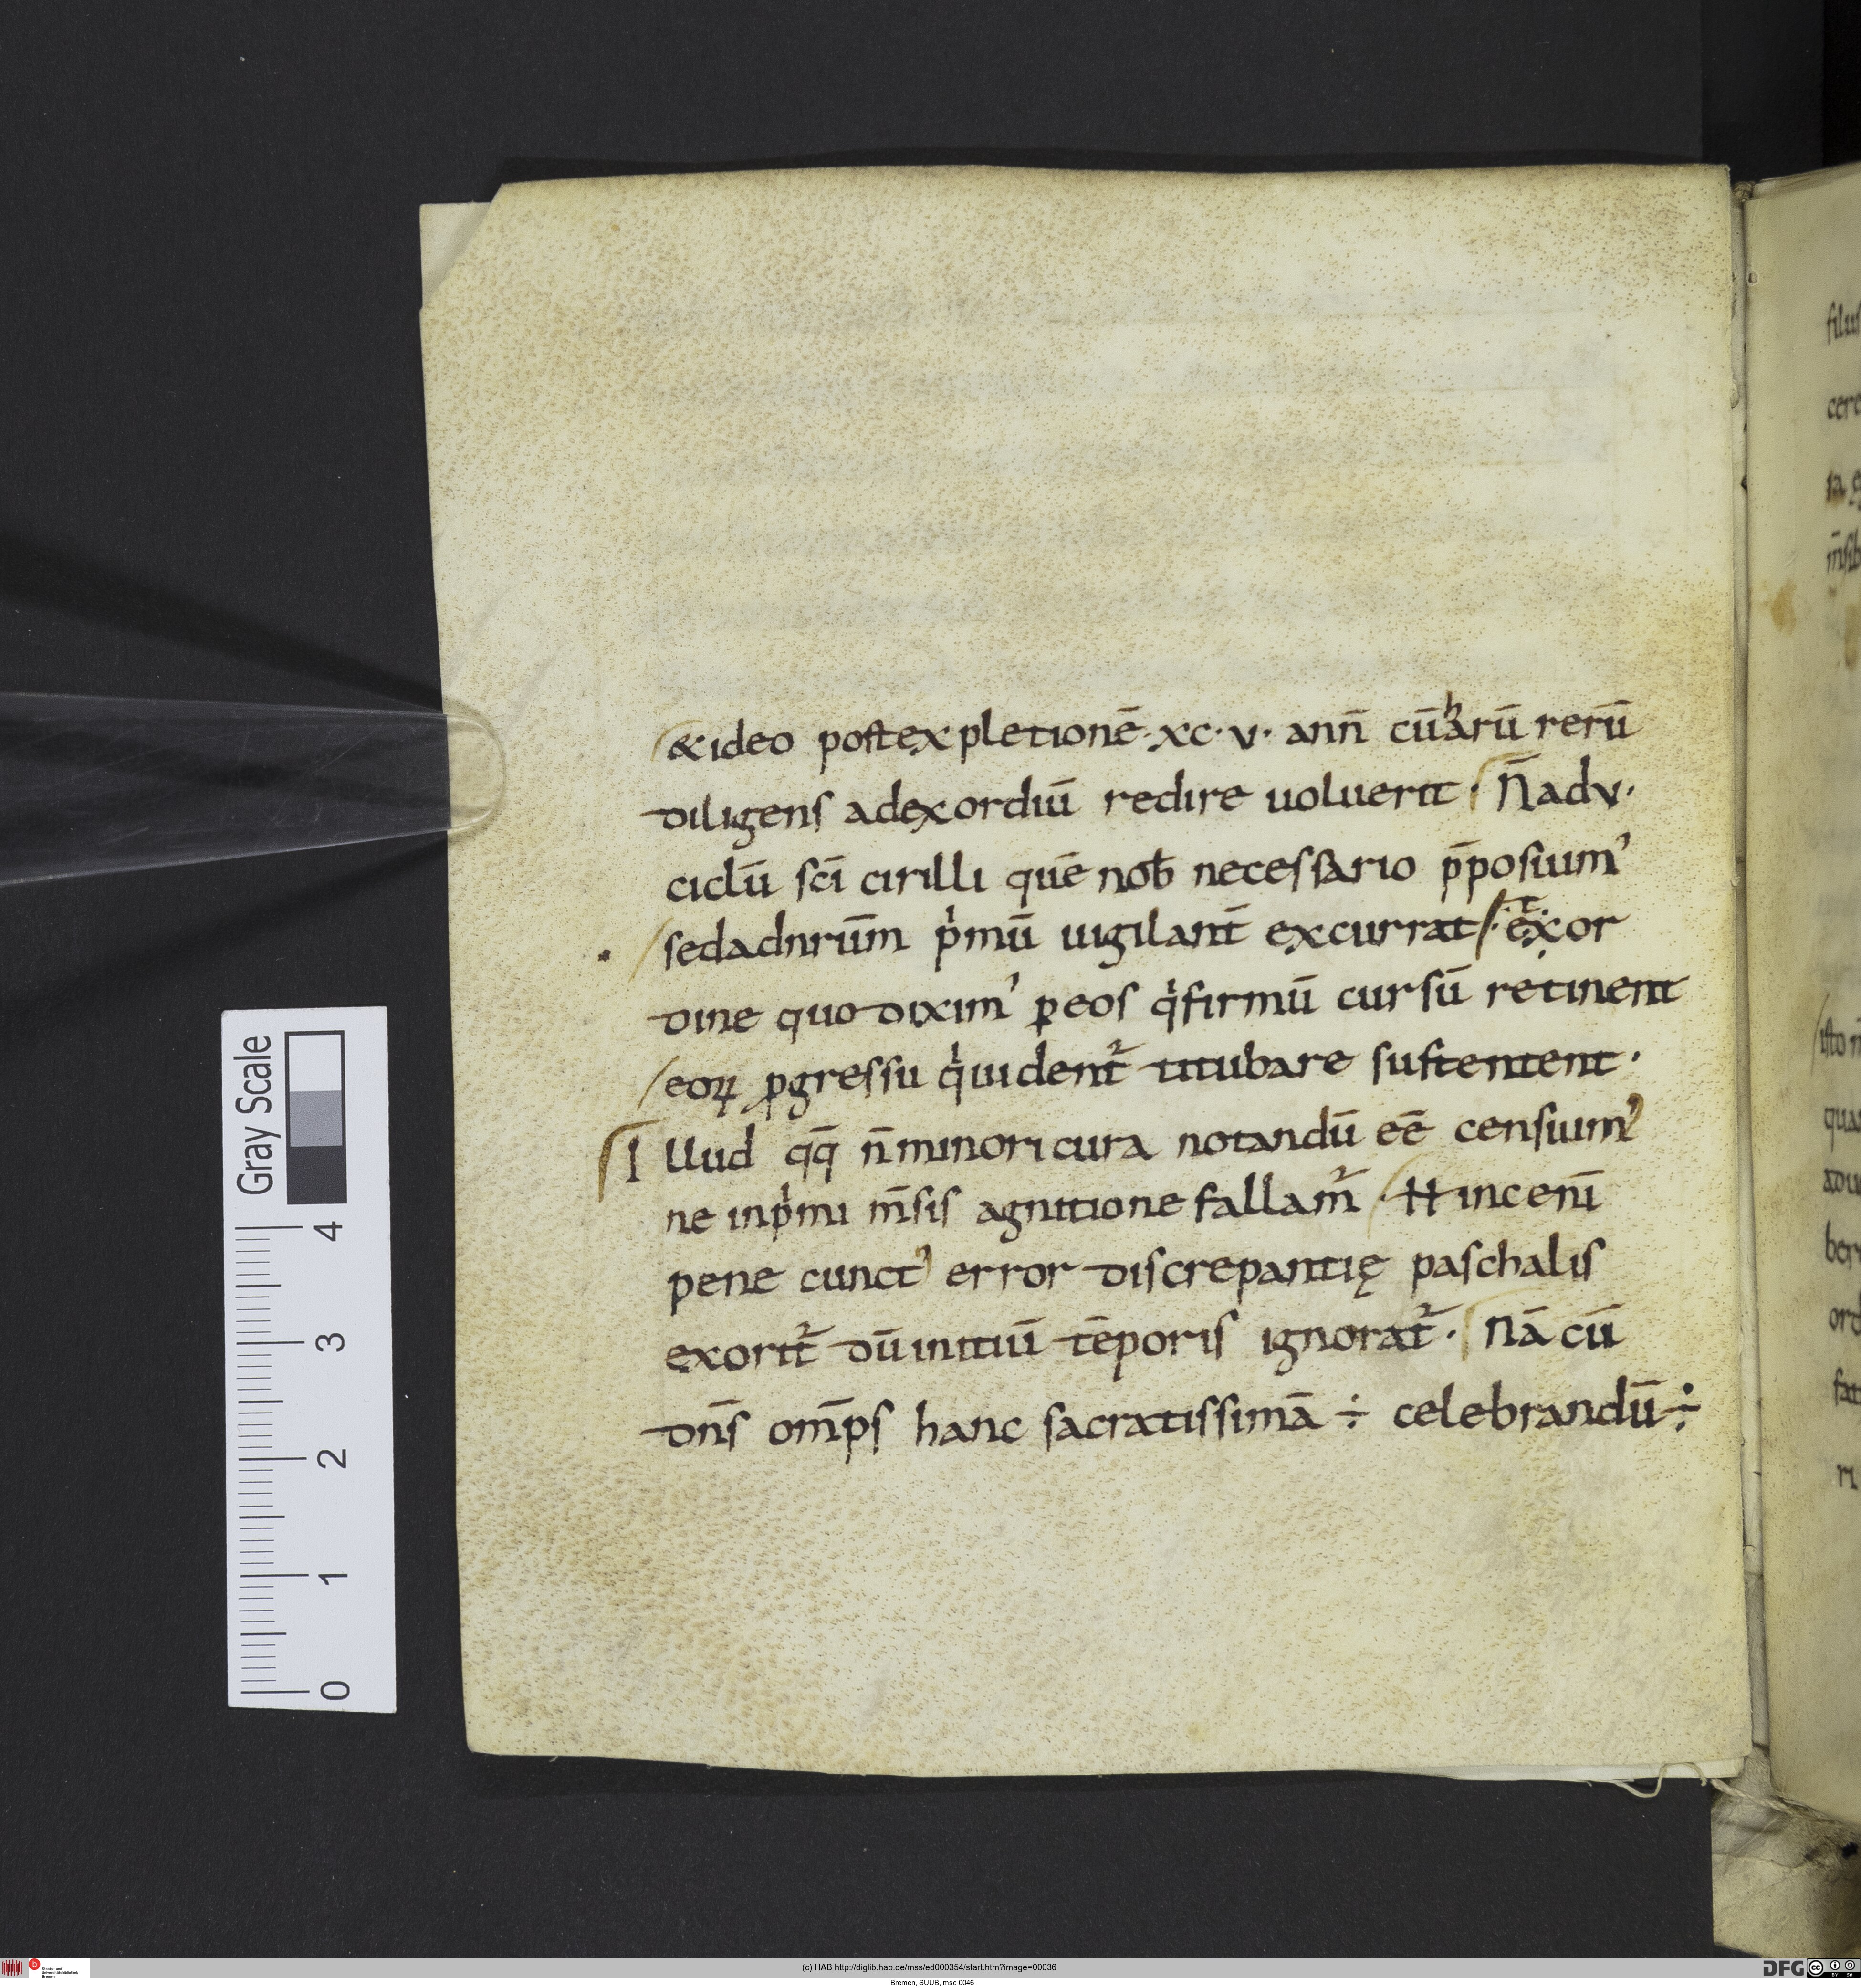 & ideo post expletionē· xc·v· ann̄ cū harū rerū
diligens ad exordiū redire uoluerit· N̄ ad v·
ciclū sc̄i cirilli quē nob̄ necessario p̄posuim᾽
sed ad nrūm pͥmū uigilant̄ excurrat· et ex or
dine quo diximʼ ꝑ eos qͥ firmū cursū retinent
eoꝝ ꝓgressu qͥ uident᷑ titubare sustentent·
Illud qq̄ n̄ minori cura notandū eē censuimʼ
ne in pͥmi m̄sis agnitione fallam᷑· Hinc eni̅
pene cunctʼ error discrepantię paschalis
exorit᷑ dū initiū tēporis ignorat᷑· Nā cū
dn̄s om̄ps hanc sacratissimā ÷ celebrandū ÷
Gray Scale
4
3
2
1
0
(c) HAB http://diglib.hab.de/mss/ed000354/start.htm?image=00036
Bremen, SUUB, msc 0046
DFG